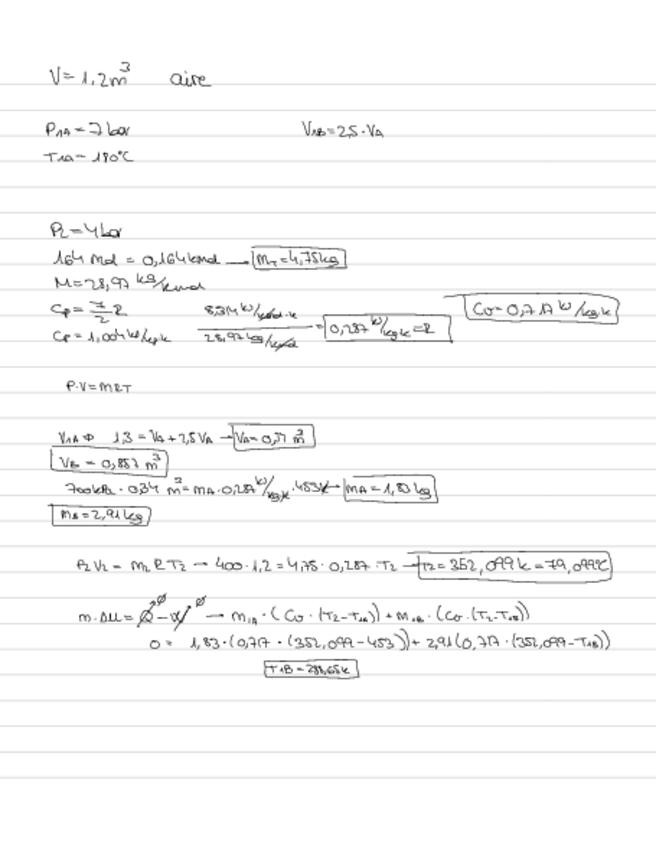 V = 1,2m³ aire
P1A = 7 bar V1B = 2,5 · VA
T1A = 180°C
P2 = 4 bar
164 mol = 0,164 kmol → mT = 4,75 kg
M = 28,97 kg/kmol
Cp = 7/2 R 8,314 kJ/kmol·k / 28,97 kg/kmol = 0,287 kJ/kg k = R Cv = 0,717 kJ/kg k
Cp = 1,004 kJ/kg k
P·V = mRT
V1A ⇒ 1,3 = VA + 2,5 VA → VA = 0,37 m³
VB = 0,857 m³
700 kPa · 0,34 m³ = mA · 0,287 kJ/kg k · 453k → mA = 1,83 kg
mB = 2,91 kg
P2V2 = m2RT2 → 400 · 1,2 = 4,75 · 0,287 · T2 → T2 = 352,099 k = 79,099°C
m·Δu = Q⁰ - W⁰ → m1A · (Cv · (T2 - T1A)) + m1B · (Cv · (T2 - T1B))
0 = 1,83 · (0,717 · (352,099 - 453)) + 2,91 (0,717 · (352,099 - T1B))
T1B = 288,65k